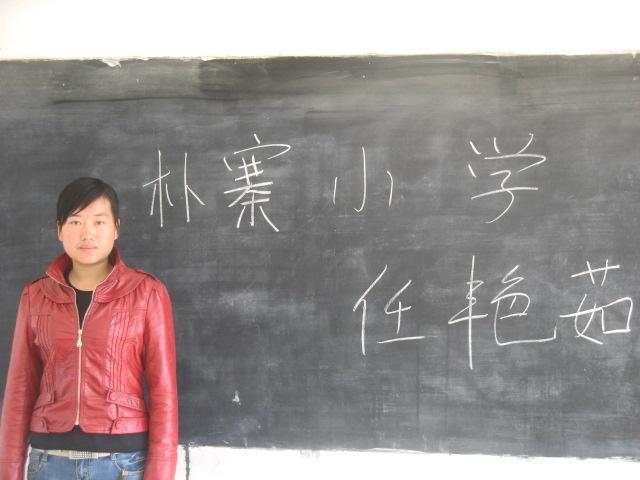 朴寨小学
任艳茹